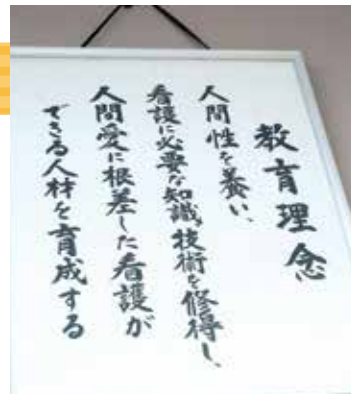 教育理念
人間性を養い、
看護に必要な知識、技術を修得し、
人間愛に根差した看護が
できる人材を育成する